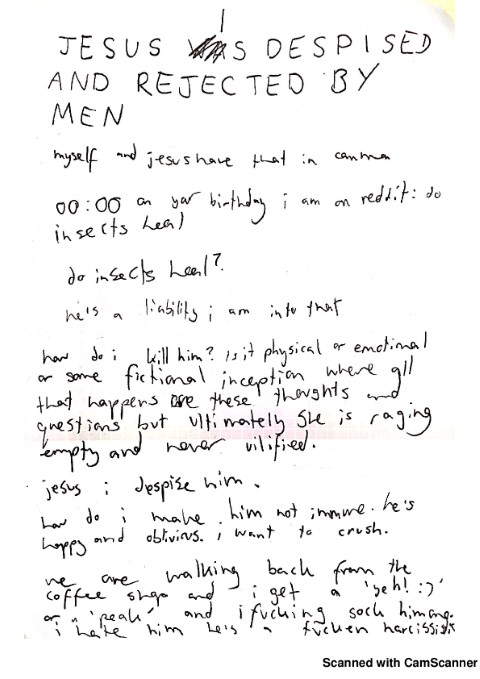 JESUS IS DESPISED
AND REJECTED BY
MEN
myself and jesus have that in common
00:00 on your birthday i am on reddit: do
insects heal
do insects heal?
he's a liability i am into that
how do i kill him? is it physical or emotional
or some fictional inception where all
that happens are these thoughts and
questions but ultimately she is raging
empty and never vilified.
jesus i despise him.
how do i make him not immune. he's
happy and oblivious. i want to crush.
we are walking back from the
coffee shop and i get a 'yeh! :)'
or a 'yeah' and i fucking sock him one.
i hate him he's a fucken narcissist
Scanned with CamScanner